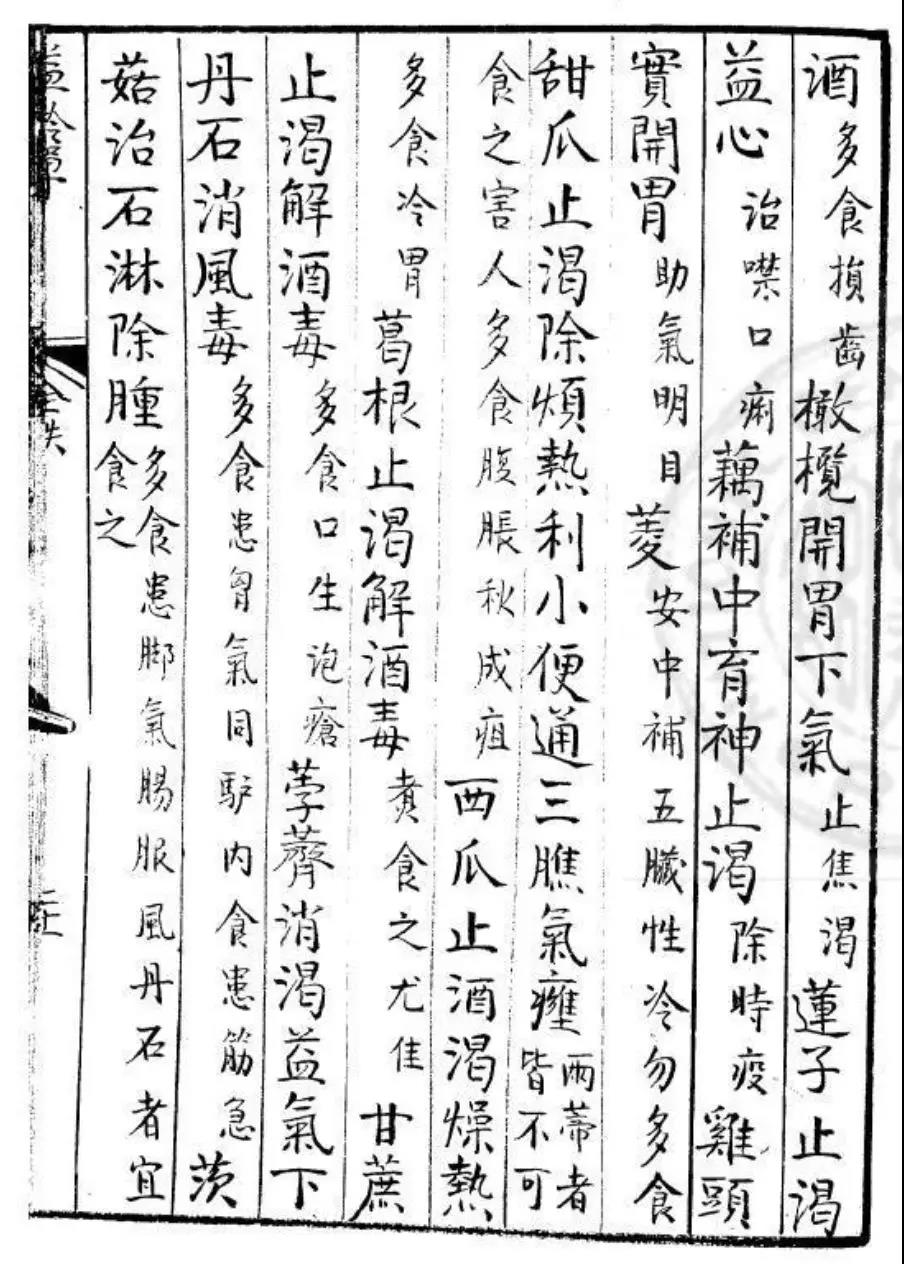 酒多食損齒橄欖開胃下氣止焦渴蓮子止渴
益心治噤口痢藕補中育神止渴除時疫雞頭
實開胃助氣明目菱安中補五臟性冷勿多食
甜瓜止渴除煩熱利小便通三膲氣癰兩蒂者皆不可
食之害人多食腹脹秋成疽西瓜止酒渴燥熱
多食冷胃葛根止渴解酒毒煑食之尤佳甘蔗
止渴解酒毒多食口生疱瘡荸薺消渴益氣下
丹石消風毒多食患胷氣同馿内食患筋急茨
菇治石淋除腫多食患脚氣腸服風丹石者宜食之
益齡單